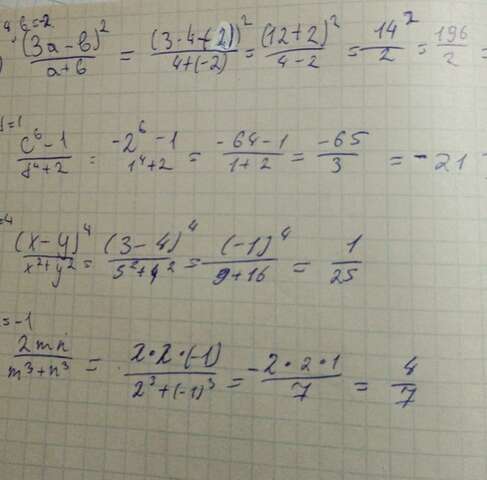 4, b=-2
) (3a-b)²/(a+b) = (3·4-(-2))²/(4+(-2)) = (12+2)²/(4-2) = 14²/2 = 196/2 =
d=1
(c⁶-1)/(d⁴+2) = (-2⁶-1)/(1⁴+2) = (-64-1)/(1+2) = -65/3 = -21
=4
(x-y)⁴/(x²+y²) = (3-4)⁴/(3²+4²) = (-1)⁴/(9+16) = 1/25
=-1
2mn/(m³+n³) = 2·2·(-1)/(2³+(-1)³) = -2·2·1/7 = 4/7